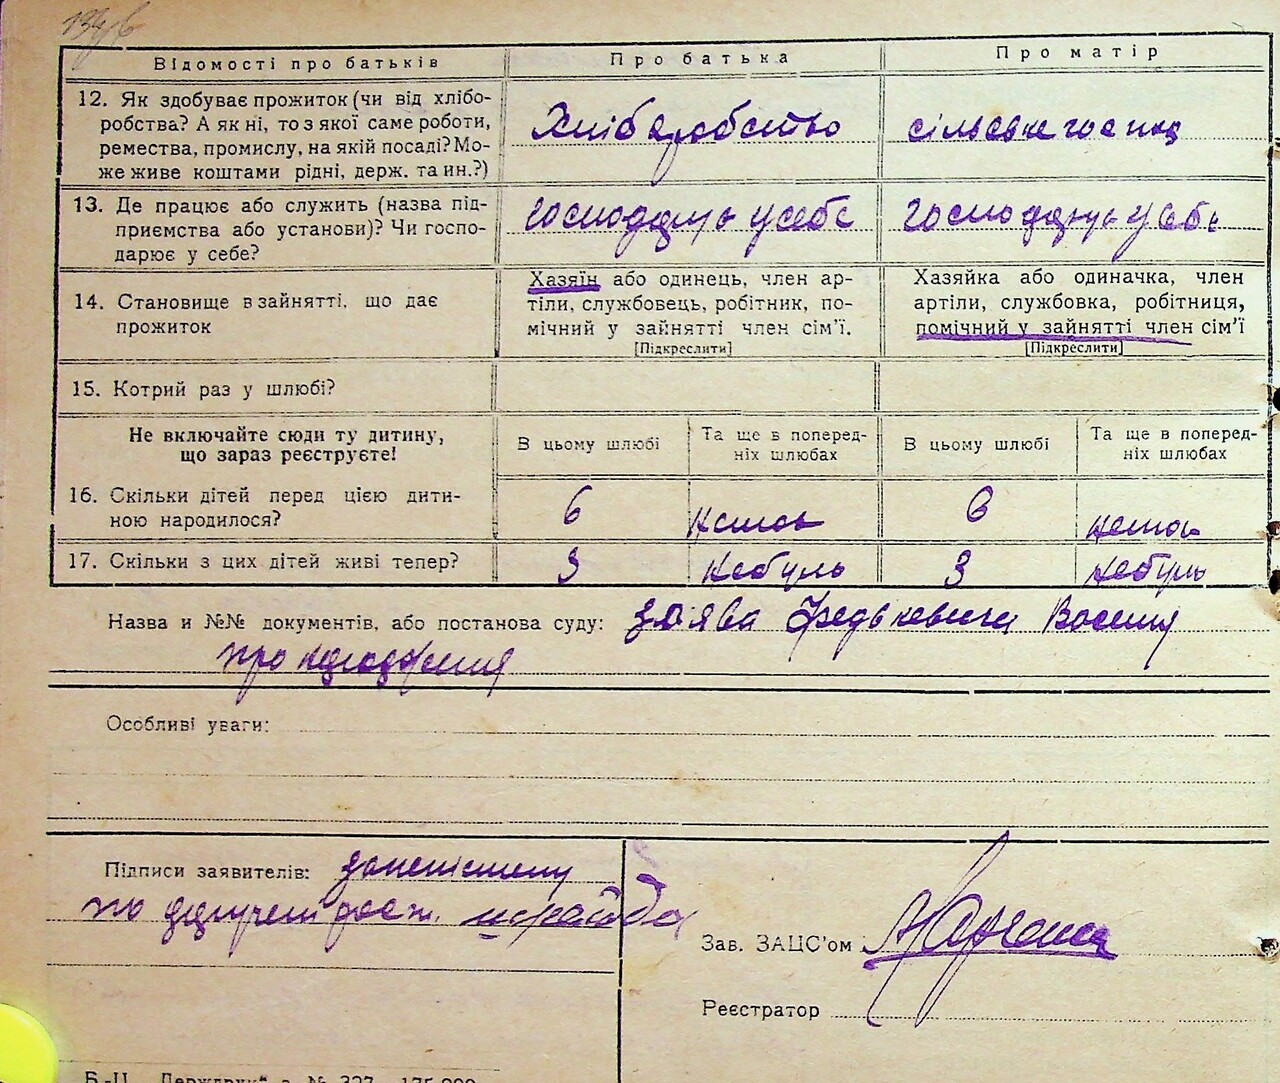 134б
Відомості про батьків Про батька Про матір
12. Як здобуває прожиток (чи від хлібо-
робства? А як ні, то з якої саме роботи,
ремества, промислу, на якій посаді? Мо-
же живе коштами рідні, держ. та ин.?)
Хліборобство
13. Де працює або служить (назва під-
приємства або установи)? Чи госпо-
дарює у себе?
14. Становище в зайнятті, що дає
прожиток
Хазяїн або одинець, член ар-
тіли, службовець, робітник, по-
мічний у зайнятті член сім'ї.
[Підкреслити]
Хазяйка або одиначка, член
артіли, службовка, робітниця,
помічний у зайнятті член сім'ї
[Підкреслити]
15. Котрий раз у шлюбі?
Не включайте сюди ту дитину,
що зараз реєструєте!
В цьому шлюбі
Та ще в поперед-
ніх шлюбах
В цьому шлюбі
Та ще в поперед-
ніх шлюбах
16. Скільки дітей перед цією дити-
ною народилося?
6 6
17. Скільки з цих дітей живі тепер?
3 небуль 3 небуль
Назва и №№ документів, або постанова суду: заява Федькевича Василя
про народження
Особливі уваги:
Підписи заявителів:
по
Зав. ЗАЦС'ом
Реєстратор
Б.-Ц. „Держдрук“ з. № 327—175.000